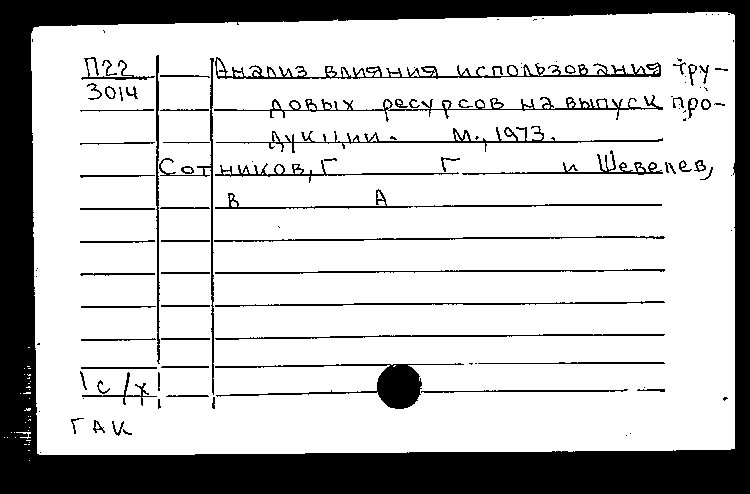 П22 Анализ влияния использования тру-
3014 довых ресурсов на выпуск про-
дукции. М., 1973.
Сотников, Г Г и Шевелев,
В А
1 с/х
ГАК